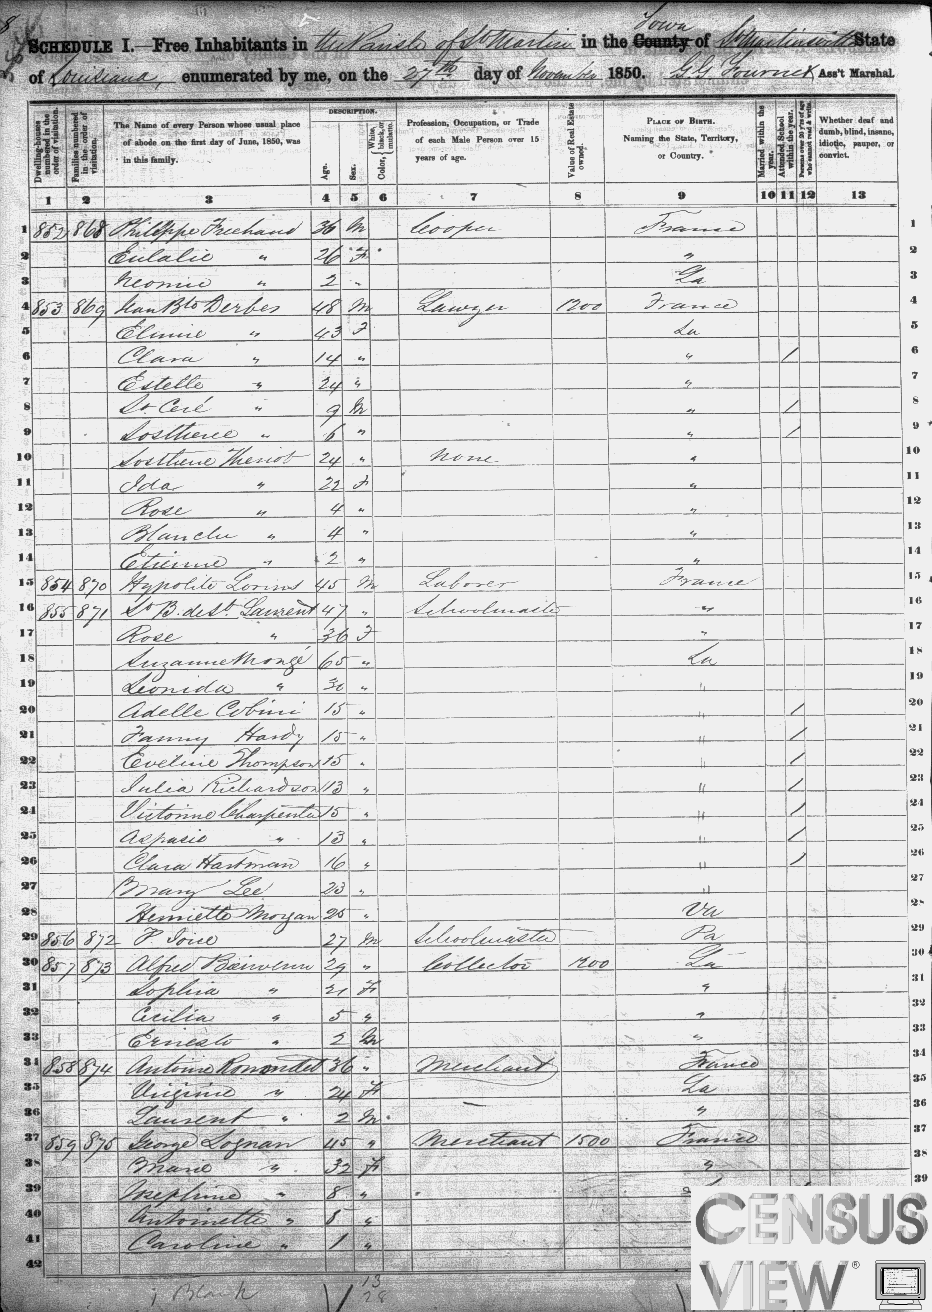 8
SCHEDULE I.—Free Inhabitants in the Parish of St Martin in the County Town of St Martinsville State
of Louisiana, enumerated by me, on the 27th day of November 1850. Ass't Marshal.
Dwelling-houses numbered in the order of visitation.
Families numbered in the order of visitation.
The Name of every Person whose usual place of abode on the first day of June, 1850, was in this family.
DESCRIPTION.
Age.
Sex.
Color, White, black, or mulatto.
Profession, Occupation, or Trade of each Male Person over 15 years of age.
Value of Real Estate owned.
PLACE OF BIRTH. Naming the State, Territory, or Country.
Married within the year.
Attended School within the year.
Persons over 20 y'rs of age who cannot read & write.
Whether deaf and dumb, blind, insane, idiotic, pauper, or convict.
1 2 3 4 5 6 7 8 9 10 11 12 13
1 852 868 Philippe 36 M Cooper France 1
2 Eulalie " 26 F " 2
3 Neomie " 2 " La 3
4 853 869 Jean Bte Derbes 48 M Lawyer 1200 France 4
5 " 43 F La 5
6 Clara " 14 " " / 6
7 Estelle " 24 " " 7
8 St Ceré " 9 M " / 8
9 Sosthene " 6 " " / 9
10 Sosthene Theriot 24 " None " 10
11 Ida " 22 F " 11
12 Rose " 4 " " 12
13 Blanche " 4 " " 13
14 Etienne " 2 " " 14
15 854 870 Hypolite 45 M Laborer France 15
16 855 871 St B. de St. Laurent 47 " Schoolmaster " 16
17 Rose " 36 F " 17
18 Suzanne Mongé 65 " La 18
19 Leonida " 30 " " 19
20 Adelle 15 " " / 20
21 Fanny Hardy 15 " " / 21
22 Eveline Thompson 15 " " / 22
23 Julia Richardson 13 " " / 23
24 Victorine Charpentier 15 " " / 24
25 Aspasie " 13 " " / 25
26 Clara Hartman 16 " " / 26
27 Mary Lee 23 " " 27
28 Henriette Morgan 25 " Va 28
29 856 872 P. 27 M Schoolmaster Pa 29
30 857 873 Alfred Bienvenu 29 " Collector 1200 La 30
31 Sophia " 21 F " 31
32 Cecilia " 5 " " 32
33 Ernesto " 2 M " 33
34 858 874 Antoine Romondet 36 " Merchant France 34
35 Virginie " 24 F La 35
36 Laurent " 2 M " 36
37 859 875 George Lognan 45 " Merchant 1500 France 37
38 Marie " 32 F " 38
39 Josephine " 8 " 39
40 Antoinette " 8 "
41 Caroline " 1 "
42
1 Black 13
28
CENSUS
VIEW®